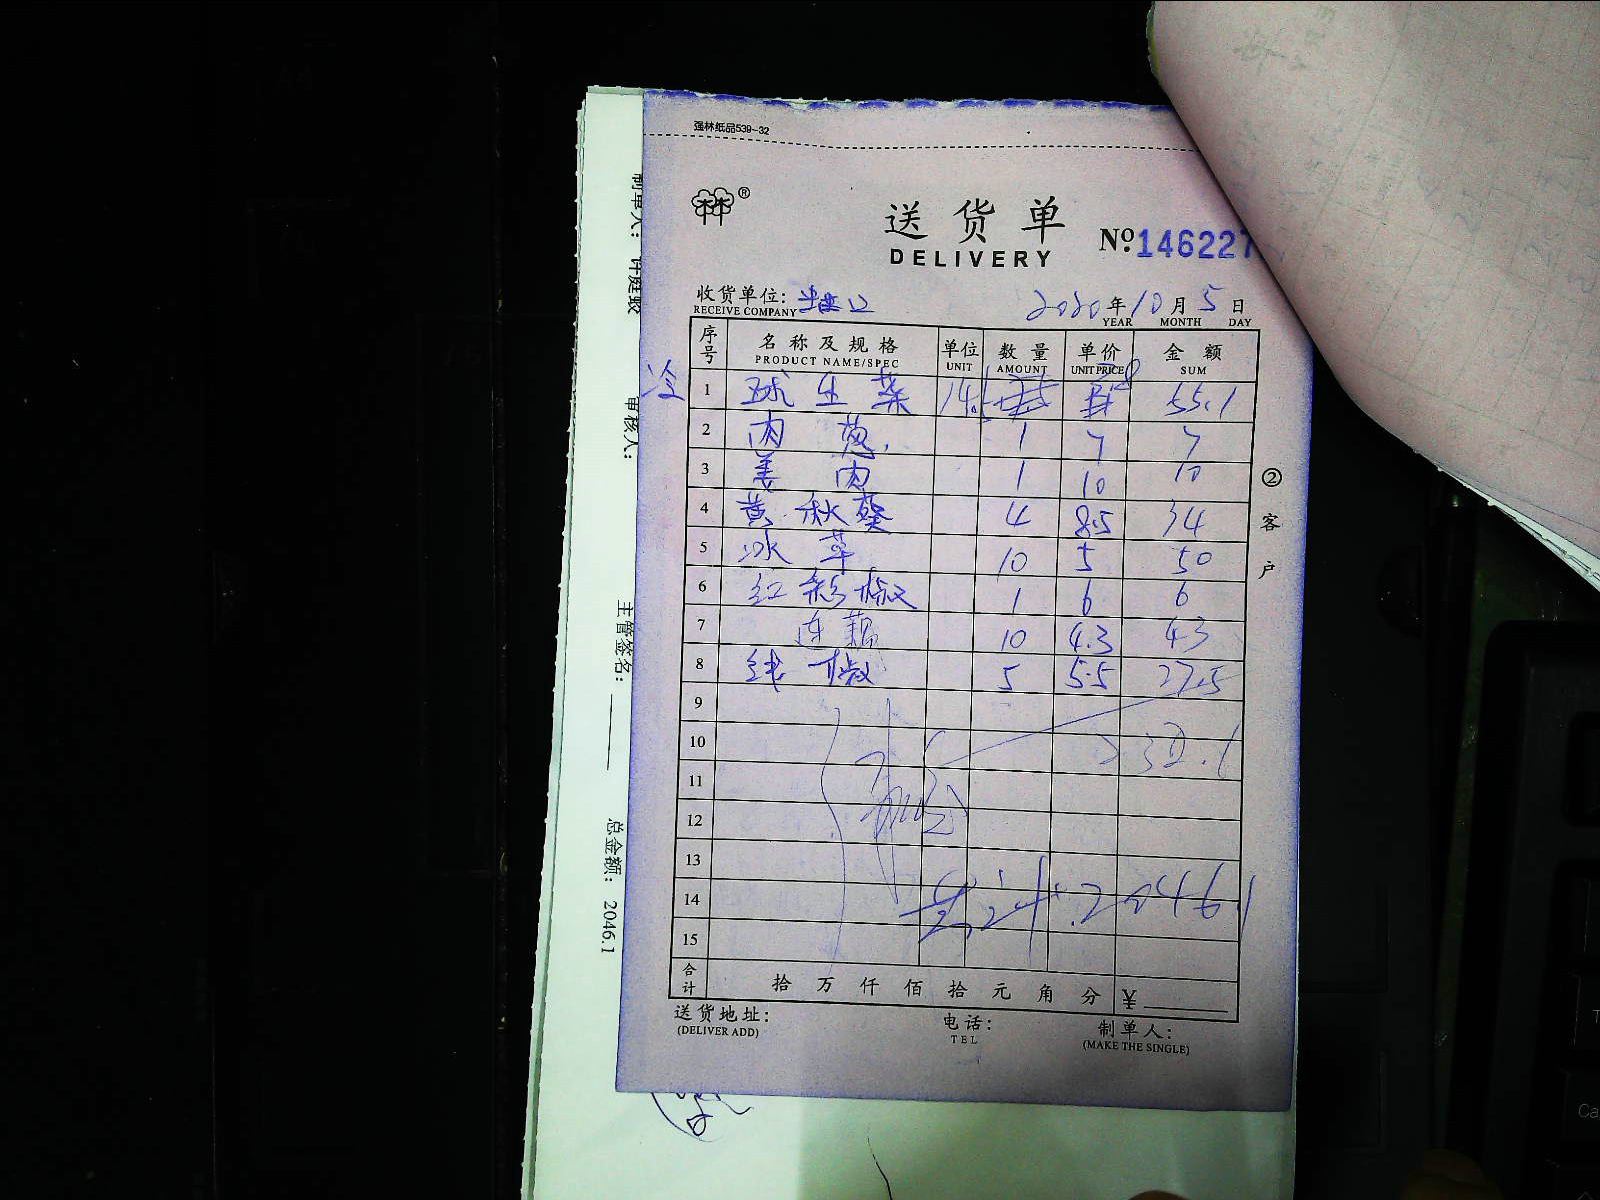 强林纸品539-32
®
送货单
DELIVERY
Nº146227
收货单位:
RECEIVE COMPANY
2020年10月5日
YEAR MONTH DAY
序号 名称及规格 单位 数量 单价 金额
PRODUCT NAME/SPEC UNIT AMOUNT UNIT PRICE SUM
冷 1 球生菜 14.5 55.1
2 肉葱 1 7 7
3 姜肉 1 10 10
4 黄秋葵 4 8.5 34
5 冰草 10 5 50
6 红彩椒 1 6 6
7 连藕 10 4.3 43
8 线椒 5 5.5 27.5
9
10
11
12
13
14 2046.1
15
合计 拾万仟佰拾元角分 ¥
送货地址:
(DELIVER ADD)
电话:
TEL
制单人:
(MAKE THE SINGLE)
②客户
制单人: 许庭蛟
审核人:
主管签名:
总金额: 2046.1